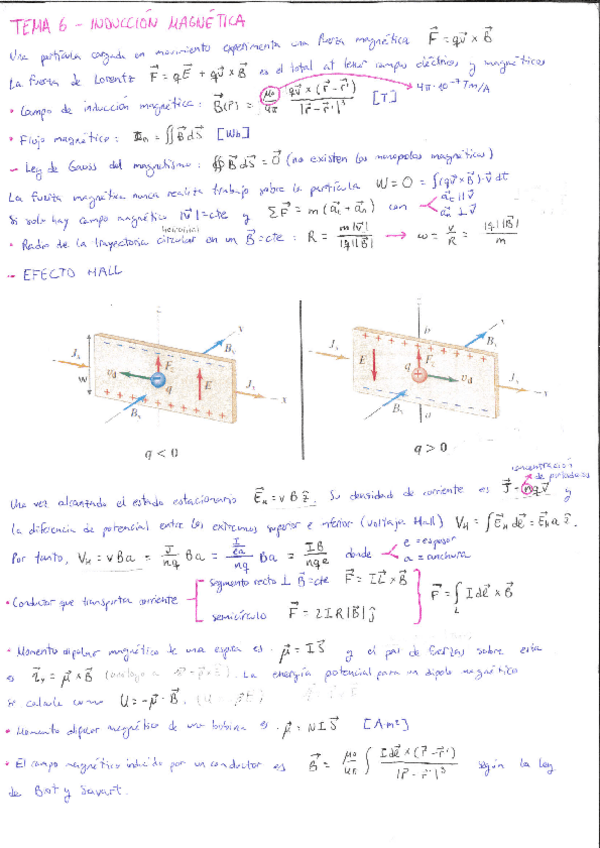 TEMA 6 - INDUCCIÓN MAGNÉTICA
Una partícula cargada en movimiento experimenta una fuerza magnética F⃗ = qv⃗ × B⃗
La fuerza de Lorentz F⃗ = qE⃗ + qv⃗ × B⃗ es el total al tener campos eléctricos y magnéticos
• Campo de inducción magnética: B⃗(r⃗) = μ₀/4π · qv⃗ × (r⃗ - r⃗')/|r⃗ - r⃗'|³ [T] 4π·10⁻⁷ Tm/A
• Flujo magnético: Φm = ∬ B⃗ dS⃗ [Wb]
- Ley de Gauss del magnetismo: ∯ B⃗ dS⃗ = 0⃗ (no existen los monopolos magnéticos)
La fuerza magnética nunca realiza trabajo sobre la partícula W = 0 = ∫(qv⃗ × B⃗)·v⃗ dt
Si solo hay campo magnético |v⃗| = cte y ΣF⃗ = m(a⃗t + a⃗n) con a⃗t ∥ v⃗ a⃗n ⊥ v⃗
helicoidal
• Radio de la trayectoria circular en un B⃗ = cte: R = m|v⃗|/|q||B⃗| → ω = v/R = |q||B⃗|/m
- EFECTO HALL
Jx w vd Fz q E By y Jx x
q < 0
Jx E Fz q vd By y Jx x
q > 0
concentración de portadores
Una vez alcanzado el estado estacionario E⃗H = v B ẑ. Su densidad de corriente es J⃗ = nqv⃗ y
la diferencia de potencial entre los extremos superior e inferior (voltaje Hall) VH = ∫E⃗H dl⃗ = E⃗H a ẑ.
Por tanto, VH = vBa = J/nq Ba = (I/ea)/nq Ba = IB/nqe donde e = espesor a = anchura
• Conductor que transporta corriente
segmento recto ⊥ B⃗ = cte F⃗ = IL⃗ × B⃗
semicírculo F⃗ = 2IR|B⃗|ĵ
F⃗ = ∫L I dl⃗ × B⃗
• Momento dipolar magnético de una espira es μ⃗ = IS⃗ y el par de fuerzas sobre esta
es τ⃗ = μ⃗ × B⃗. La energía potencial para un dipolo magnético
se calcula como U = -μ⃗ · B⃗.
• Momento dipolar magnético de una bobina es μ⃗ = NIS⃗ [A·m²]
• El campo magnético inducido por un conductor es B⃗ = μ₀/4π ∫ I dl⃗ × (r⃗ - r⃗')/|r⃗ - r⃗'|³ según la ley
de Biot y Savart.